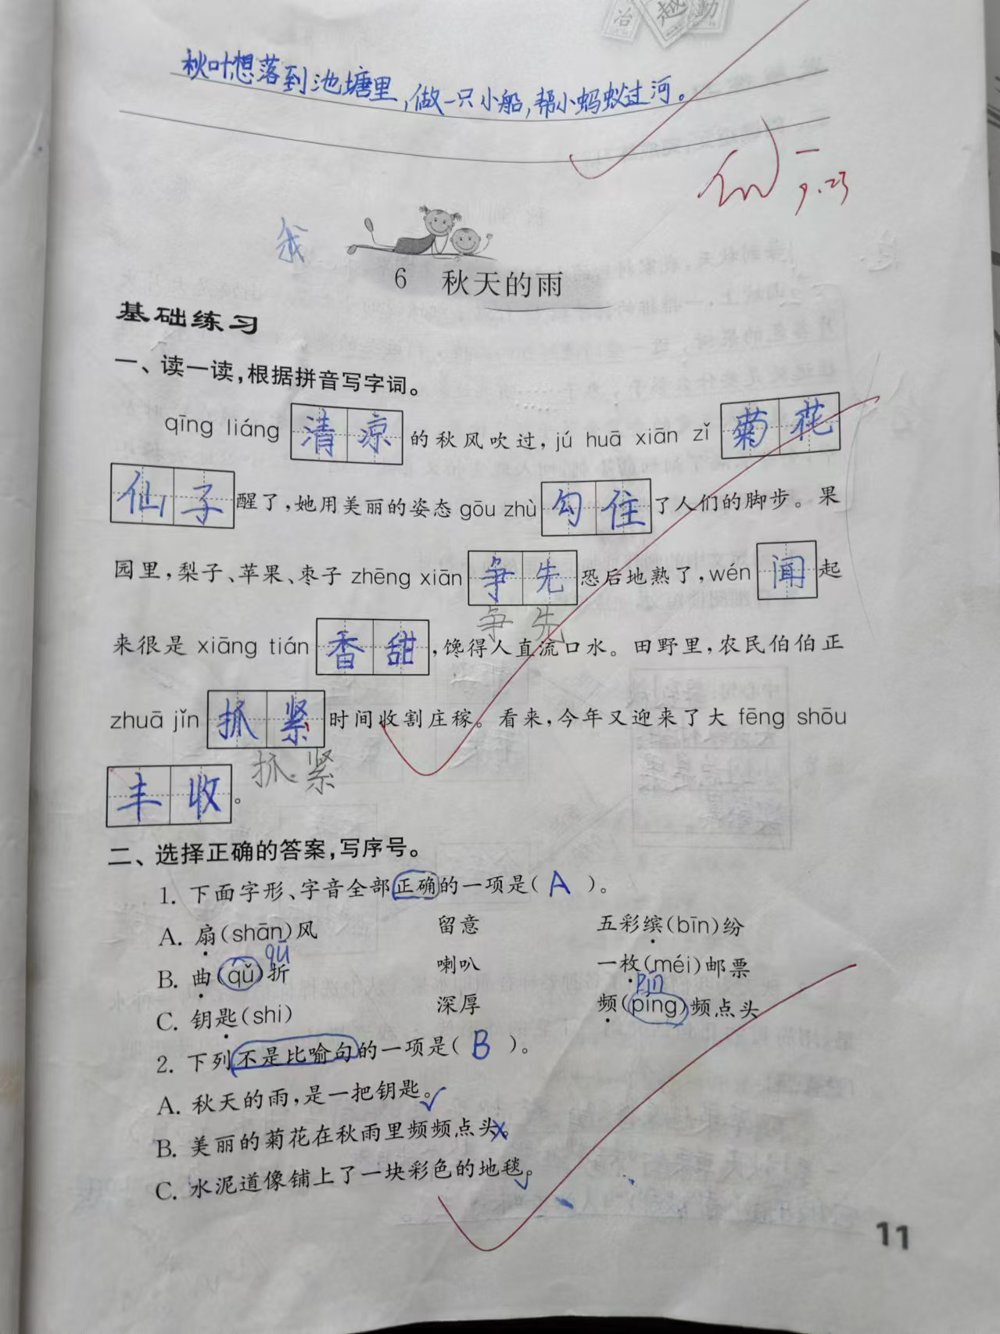 治 越 勤
秋叶想落到池塘里,做一只小船,帮小蚂蚁过河。
9.23
我
6 秋天的雨
基础练习
一、读一读,根据拼音写字词。
qīng liáng 清凉 的秋风吹过,jú huā xiān zǐ 菊花
仙子 醒了,她用美丽的姿态 gōu zhù 勾住 了人们的脚步。果
园里,梨子、苹果、枣子 zhēng xiān 争先 恐后地熟了,wén 闻 起
争先
来很是 xiāng tián 香甜,馋得人直流口水。田野里,农民伯伯正
zhuā jǐn 抓紧 时间收割庄稼。看来,今年又迎来了大 fēng shōu
抓紧
丰收。
二、选择正确的答案,写序号。
1. 下面字形、字音全部正确的一项是( A )。
A. 扇(shān)风 留意 五彩缤(bīn)纷
qū
B. 曲(qǔ)折 喇叭 一枚(méi)邮票
pín
C. 钥匙(shi) 深厚 频(píng)频点头
2. 下列不是比喻句的一项是( B )。
A. 秋天的雨,是一把钥匙。✓
B. 美丽的菊花在秋雨里频频点头。×
C. 水泥道像铺上了一块彩色的地毯。✓
11